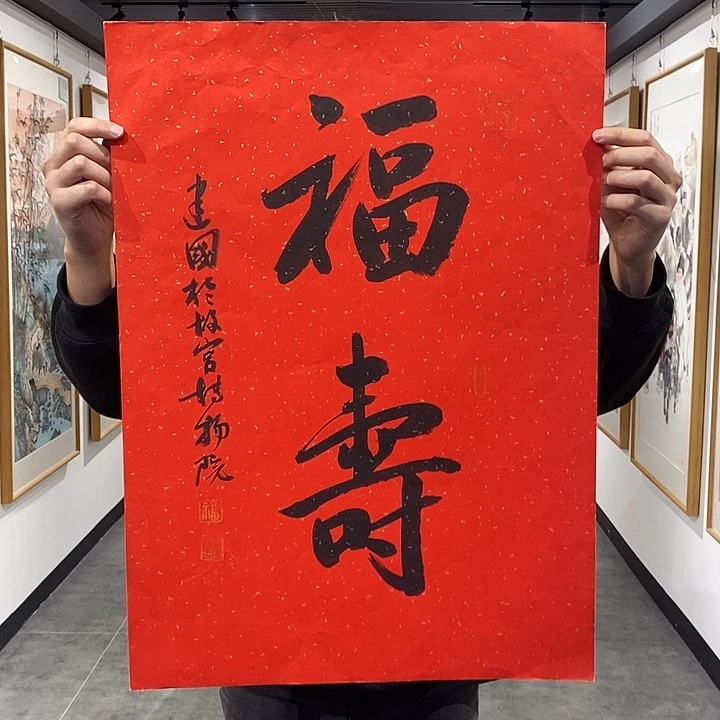 福壽
建國於故宮博物院